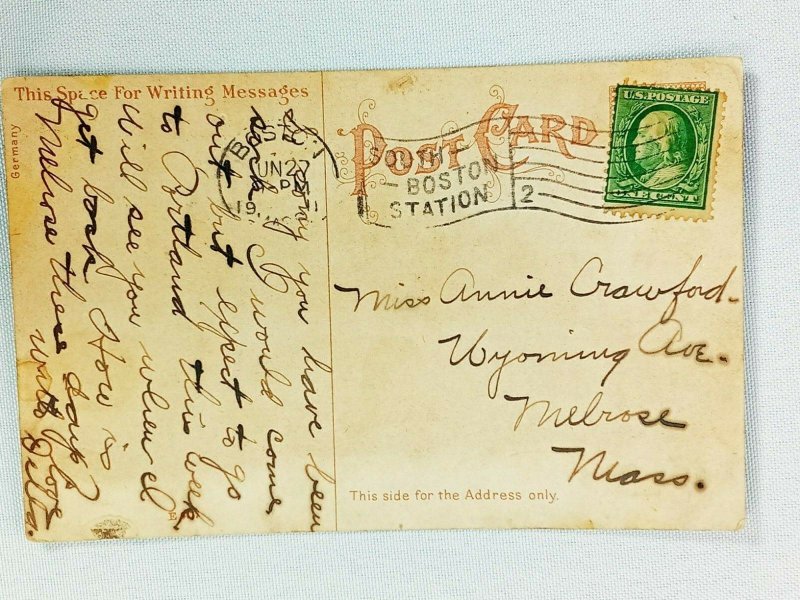 This Space For Writing Messages
Germany
POST CARD
U.S. POSTAGE
ONE CENT
BOSTON
JUN 27
PM
19
SOUTH
BOSTON
STATION
2
you have been
sick I would come
out but expect to go
to Portland this week
Will see you when I
get back How is
Melrose these days
with love
Miss Annie Crawford.
Wyoming Ave.
Melrose
Mass.
This side for the Address only.